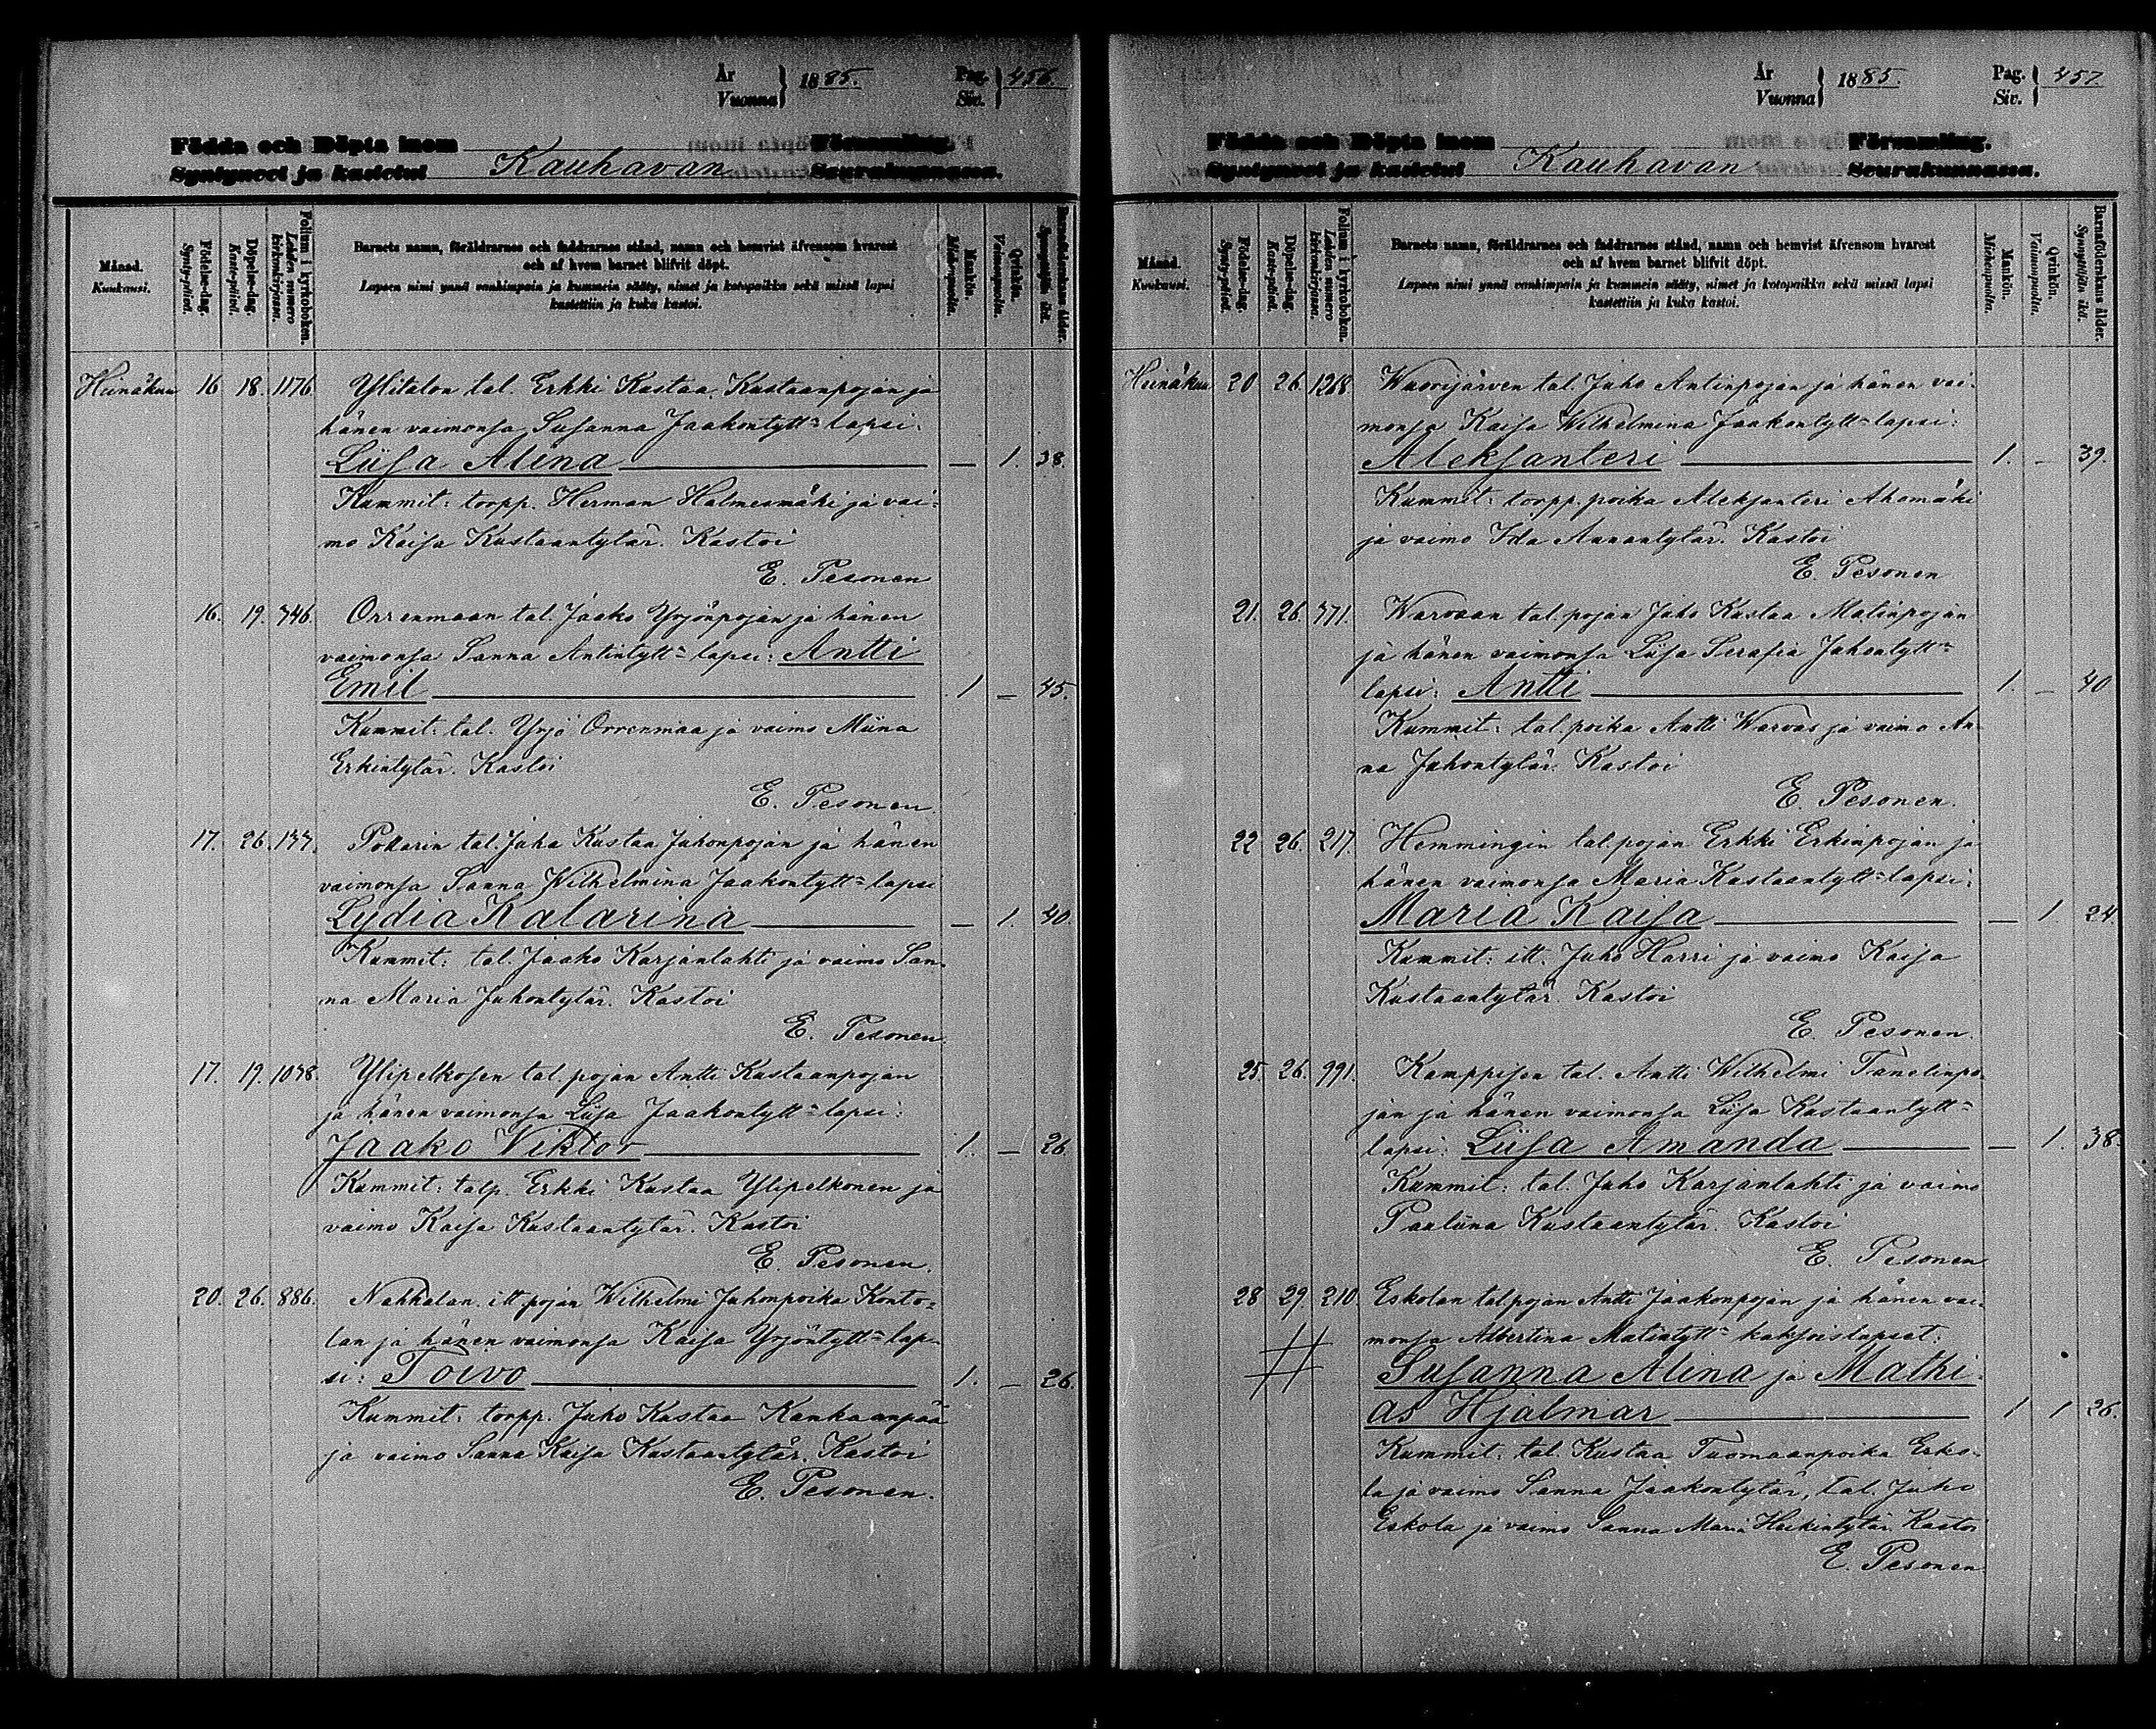 År
Vuonna } 1885. Pag.
Siv. } 456.
Födda och Döpta inom Församling.
Syntyneet ja kastetut Kauhavan Seurakunnassa.
Månad. Kuukausi.
Födelse-dag. Synty-päivä.
Döpelse-dag. Kaste-päivä.
Folium i kyrkoboken. Lehden numero kirkonkirjassa.
Barnets namn, föräldrarnes och faddrarnes stånd, namn och hemvist äfvensom hvarest
och af hvem barnet blifvit döpt.
Lapsen nimi ynnä vanhimpain ja kummein sääty, nimet ja kotopaikka sekä missä lapsi
kastettiin ja kuka kastoi.
Mankön. Miehenpuolta.
Qvinkön. Vaimonpuolta.
Barnaföderskans ålder. Synnyttäjän ikä.
Heinäkuu 16 18. 1176. Ylitalon tal. Erkki Kustaa Kustaanpojan ja
hänen vaimonsa Susanna Jaakontytt= lapsi:
Liisa Alina — 1. 38.
Kummit: torpp. Herman Halmesmäki ja vai=
mo Kaisa Kustaantytär. Kastoi
E. Pesonen
16. 19. 746. Orrenmaan tal. Jaako Yrjönpojan ja hänen
vaimonsa Sanna Antintytt= lapsi: Antti
Emil 1 — 45.
Kummit: tal. Yrjö Orrenmaa ja vaimo Miina
Erkintytär. Kastoi
E. Pesonen.
17. 26. 137. Potkarin tal. Juha Kustaa Juhonpojan ja hänen
vaimonsa Sanna Wilhelmina Jaakontytt= lapsi
Lydia Katarina — 1. 40.
Kummit: tal. Jaako Karjanlahti ja vaimo San=
na Maria Juhontytär. Kastoi
E. Pesonen.
17. 19. 1038. Ylipelkosen tal. pojan Antti Kustaanpojan
ja hänen vaimonsa Liisa Jaakontytt= lapsi:
Jaako Viktor 1. — 26.
Kummit: talp. Erkki Kustaa Ylipelkonen ja
vaimo Kaisa Kustaantytär. Kastoi
E. Pesonen.
20. 26. 886. Nahkalan itt. pojan Wilhelmi Juhonpoika Konto=
lan ja hänen vaimonsa Kaisa Yrjöntytt= lap=
si: Toivo 1. — 26.
Kummit: torpp. Juho Kustaa Kankaanpää
ja vaimo Sanna Kaisa Kustaantytär. Kastoi
E. Pesonen.
År
Vuonna } 1885. Pag.
Siv. } 457.
Födda och Döpta inom Församling.
Syntyneet ja kastetut Kauhavan Seurakunnassa.
Månad. Kuukausi.
Födelse-dag. Synty-päivä.
Döpelse-dag. Kaste-päivä.
Folium i kyrkoboken. Lehden numero kirkonkirjassa.
Barnets namn, föräldrarnes och faddrarnes stånd, namn och hemvist äfvensom hvarest
och af hvem barnet blifvit döpt.
Lapsen nimi ynnä vanhimpain ja kummein sääty, nimet ja kotopaikka sekä missä lapsi
kastettiin ja kuka kastoi.
Mankön. Miehenpuolta.
Qvinkön. Vaimonpuolta.
Barnaföderskans ålder. Synnyttäjän ikä.
Heinäkuu 20 26. 1268. Wuorijärven tal. Juho Antinpojan ja hänen vai=
monsa Kaisa Wilhelmina Jaakontytt= lapsi:
Aleksanteri 1. — 39.
Kummit: torpp. poika Aleksanteri Ahomäki
ja vaimo Ida Aunantytär. Kastoi
E. Pesonen
21. 26. 771. Warvaan tal. pojan Juho Kustaa Matinpojan
ja hänen vaimonsa Liisa Serafia Juhontytt=
lapsi: Antti 1. — 40
Kummit: tal. poika Antti Warvas ja vaimo An=
na Juhontytär. Kastoi
E. Pesonen.
22 26. 217. Hemmingin tal. pojan Erkki Erkinpojan ja
hänen vaimonsa Maria Kustaantytt= lapsi:
Maria Kaisa — 1 24
Kummit: itt. Juho Harri ja vaimo Kaisa
Kustaantytär. Kastoi
E. Pesonen.
25. 26. 991. Kamppisen tal. Antti Wilhelmi Tanelinpo=
jan ja hänen vaimonsa Liisa Kustaantytt=
lapsi: Liisa Amanda — 1. 38.
Kummit: tal. Juho Karjanlahti ja vaimo
Pauliina Kustaantytär. Kastoi
E. Pesonen
28 29. 210 Eskolan tal. pojan Antti Jaakonpojan ja hänen vai=
monsa Albertina Matintytt= kaksoislapset:
Susanna Alina ja Mathi=
as Hjalmar 1 1 26.
Kummit: tal. Kustaa Tuomaanpoika Erko=
la ja vaimo Sanna Jaakontytär, tal. Juho
Eskola ja vaimo Sanna Maria Heikintytär. Kastoi
E. Pesonen